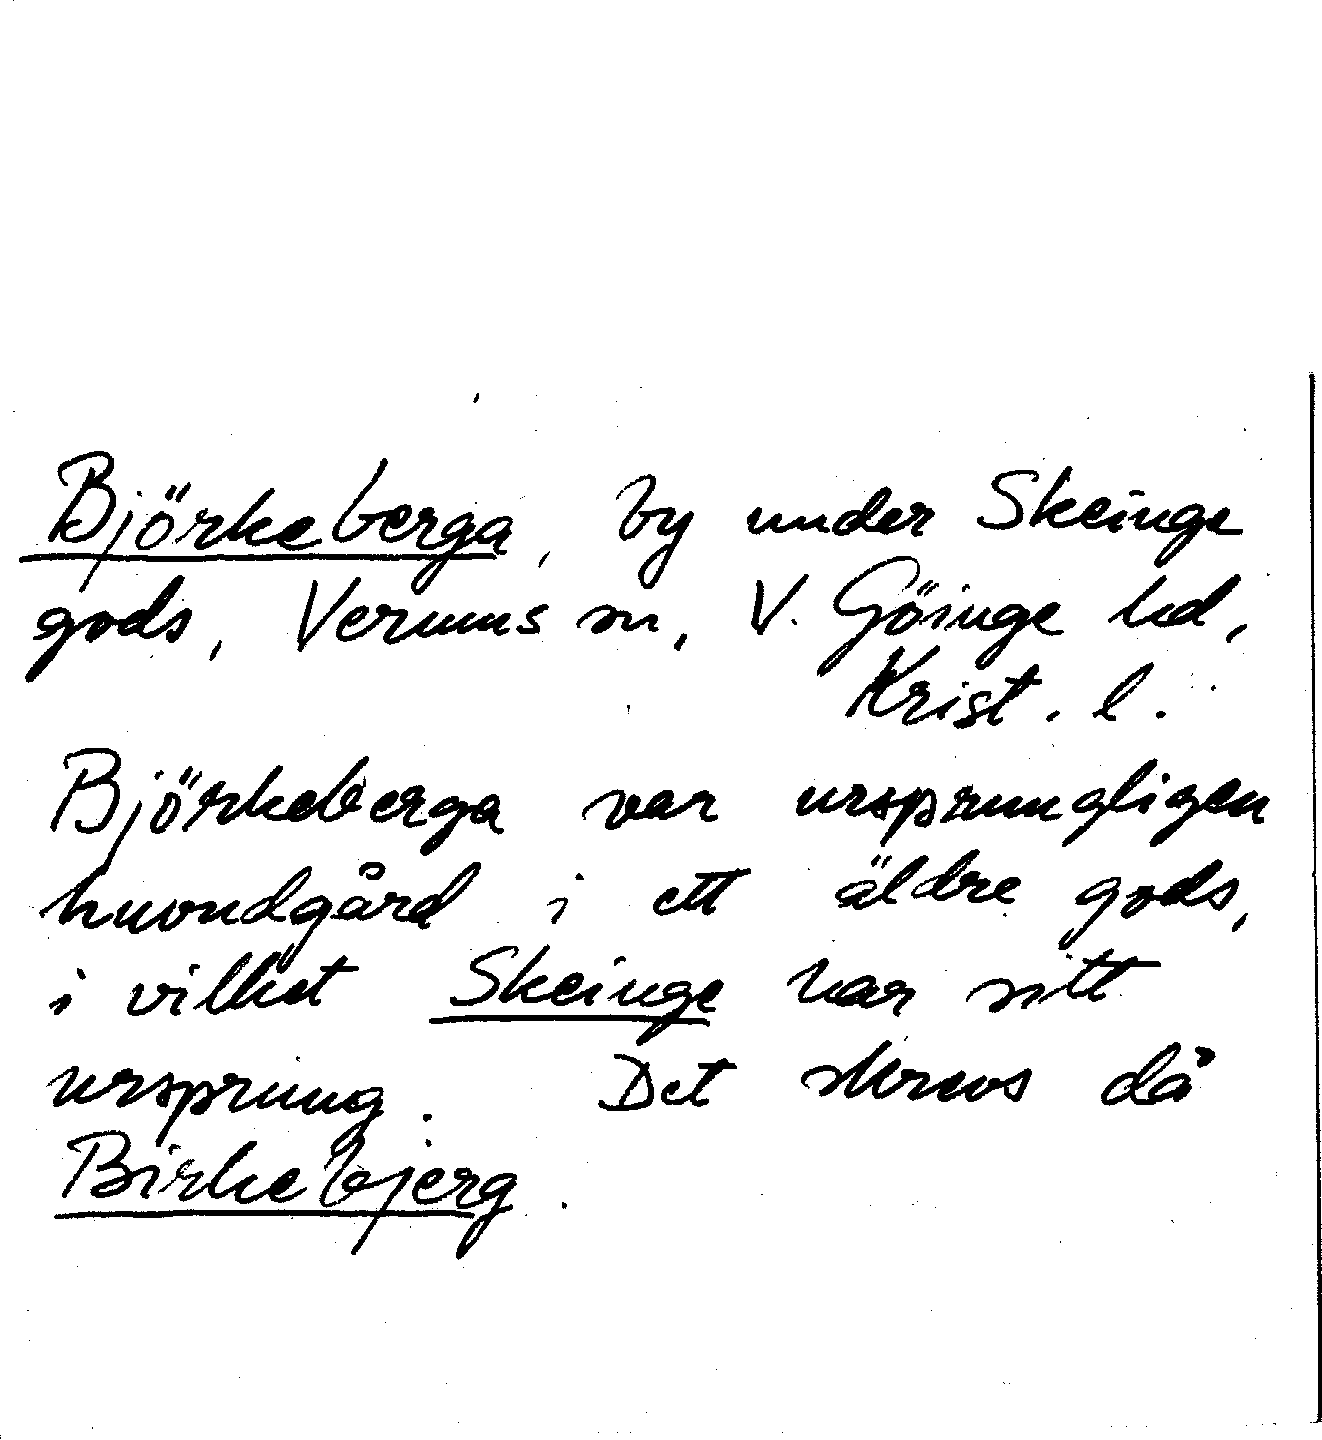 Björkeberga, by under Skeinge
gods, Verums sn, V. Göinge hd,
Krist. l.
Björkeberga var ursprungligen
huvudgård i ett äldre gods,
i vilket Skeinge har sitt
ursprung. Det skrevs då
Birkebjerg.